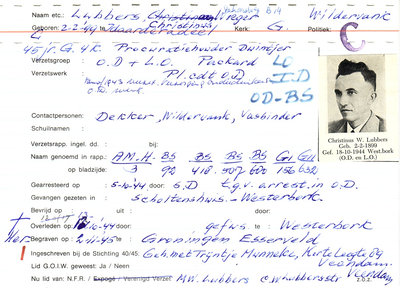 Naam etc.: Lubbers, Christinus Wieger Wildervank
Geboren: 2-2-99 Haarderadeel Kerk: G. Politiek: C
45 jr. G. 4 K. Procuratiehouder Dwinger
Verzetsgroep O.D + L.O. Packard LO
Verzetswerk Pl. cdt O.D J.D
O.D.
OD-BS
Contactpersonen: Dekker, Wildervank, Vasbinder
Schuilnaam :
Christinus W. Lubbers
Geb. 2-2-1899
Gef. 18-10-1944 West.bork
(O.D. en L.O.)
Verzetsrap., ingel. dd. : bij :
Naam genoemd in rapp.: AM.H. BS BS BS BS GI GII
op bladzijde: 3 92 418 507 600 156 632
Gearresteerd op 5-10-44 door: S.D t.g.v. arrest. in O.D.
Gevangen gezeten in Scholtenshuis - Westerbork.
Bevrijd op uit: door
Overleden op 18-10-44 door: gefus. te: Westerbork
Her. Begraven op: 2-11-45 te: Groningen Esserveld
Ingeschreven bij de Stichting 40/45: Geh. met Tryntje Munneke, Korte Legte 89
Veendam.
Lid G.O.I.W. geweest: Ja / Neen
Nu lid van: N.F.R. / Expogé / Verenigd Verzet MW. Lubbers C.W. Lubbersstr Veendam
z.o.z.